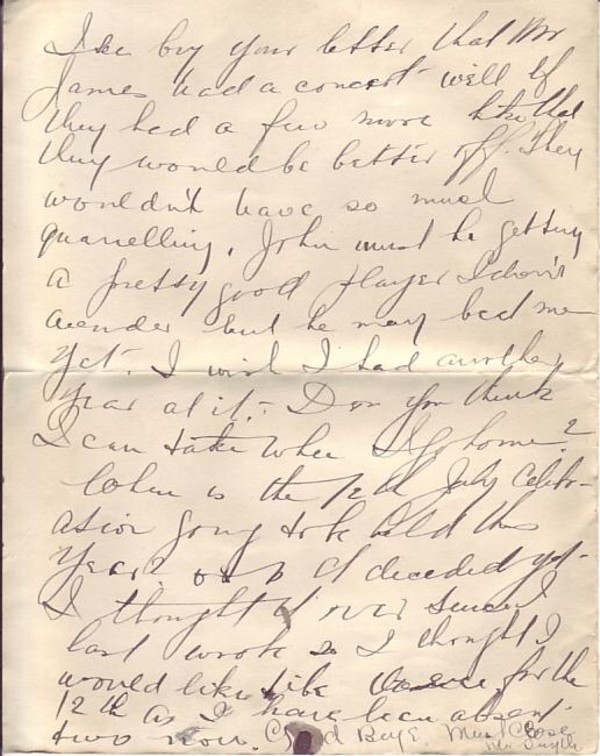 I see by your letter that Mr
James had a concert well if
they had a few more like that
they would be better off. They
wouldn't have so much
quarrelling. John must be getting
a pretty good player I don't
wonder but he may beat me
yet. I wish I had another
year at it. Don you think
I can take when I go home?
When is the 12th July Celebr-
ation going to be held this
Year?
I thought over since I
last wrote so I thought I
would like to be for the
12th as I have been absent
two now. Good Bye. Must Close